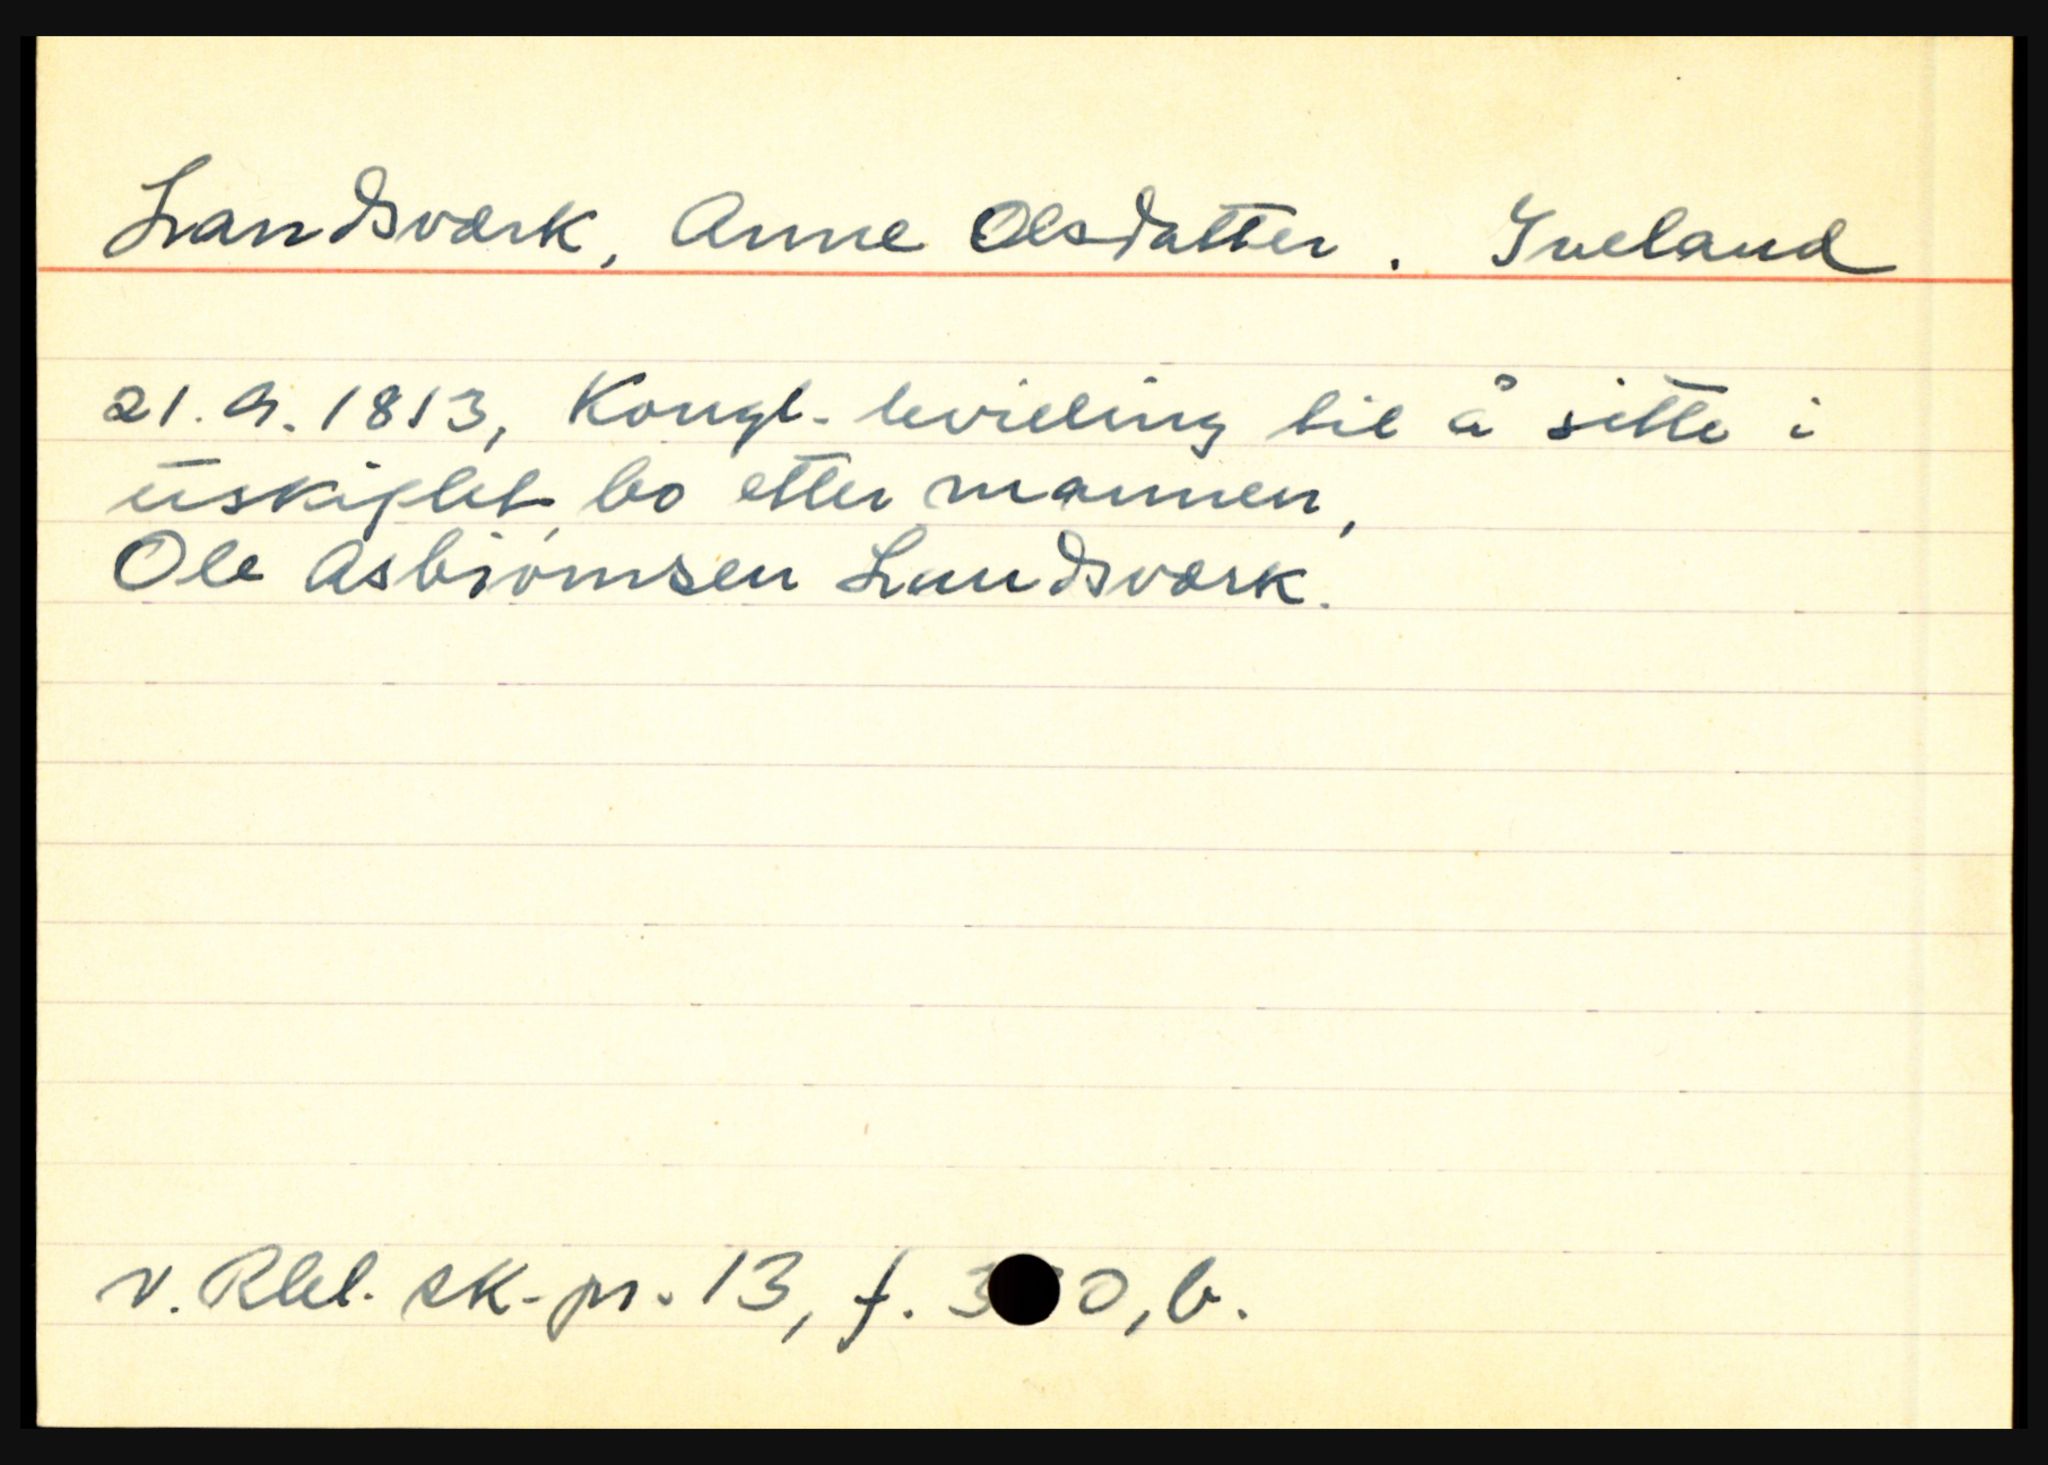 Landsværk, Anne Olsdatter. Iveland
21. 9. 1813, Kongl. bevilling til å sitte i
uskiftet bo etter mannen,
Ole Asbiørnsen Landsværk.
v. Rbl. sk. pr. 13, f. b.